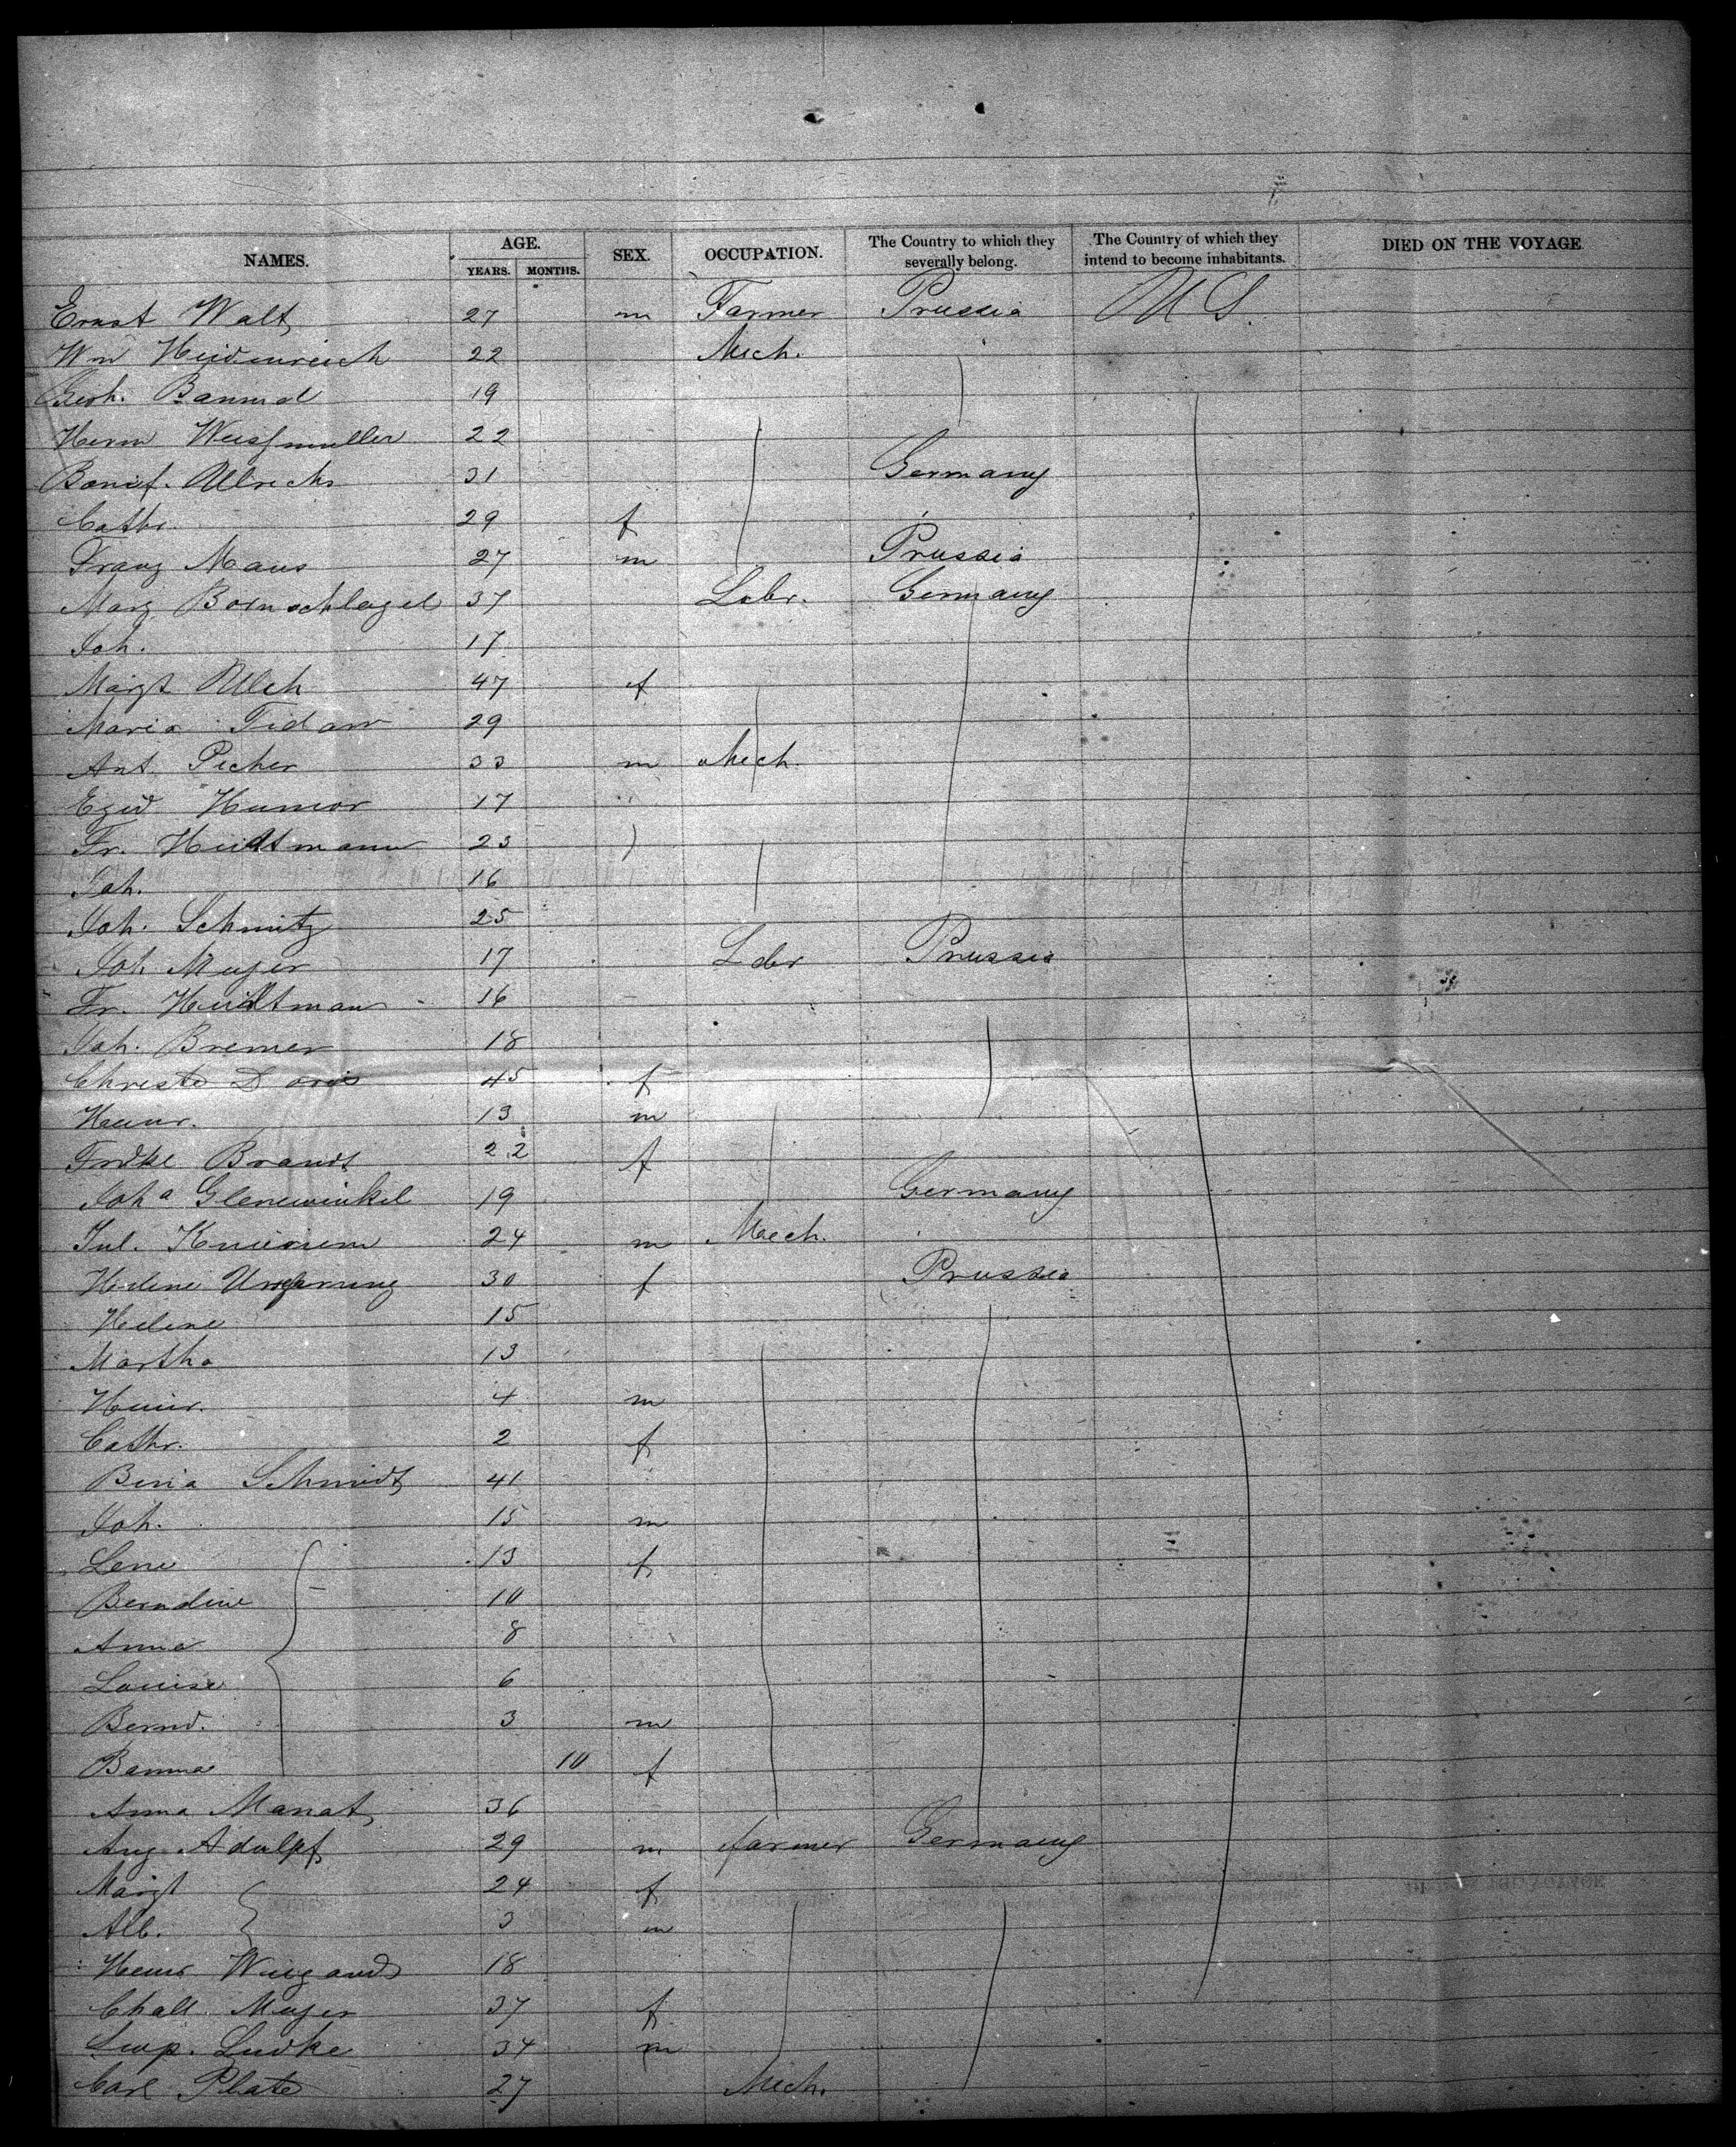 NAMES. AGE. SEX. OCCUPATION. The Country to which they severally belong. The Country of which they intend to become inhabitants. DIED ON THE VOYAGE
YEARS. MONTHS.
Ernst Walt 27 m Farmer Prussia U S.
Wm Heidenreich 22 Mech.
Gerh. 19
Herm Weissmuller 22
Bonif. Ullrichs 31 Germany
Cathr. 29 f
Franz Maus 27 m Prussia
Marg Bornschlagel 37 Labr. Germany
Joh. 17
Margt Ulch 47 f
Maria 29
Ant. Picher 33 m Mech.
Egid Humor 17 "
Fr. Heidtmann 23
Joh. 16
Joh. Schmitz 25
Joh Meyer 17 Labr Prussia
Fr. Heidtman 16
Joh. Bremer 18
Christe Doris 45 f
Heinr. 13 m
Frdke Brandt 22 f
Joha Glenewinkel 19 Germany
Jul. Knieriem 24 m Mech.
Helene Ursprung 30 f Prussia
Helene 15
Martha 13
Heinr. 4 m
Cathr. 2 f
Schmidt 41
Joh. 15 m
Lene 13 f
Berndine 10
Anna 8
Louise 6
Bernd. 3 m
10 f
Anna Manat 36
Aug Adolpf 29 m farmer Germany
Margt 24 f
Alb. 3 m
Heinr Wiegands 18
Meyer 37 f
Leop. Ludke 34 m
Carl Plate 27 Mech.